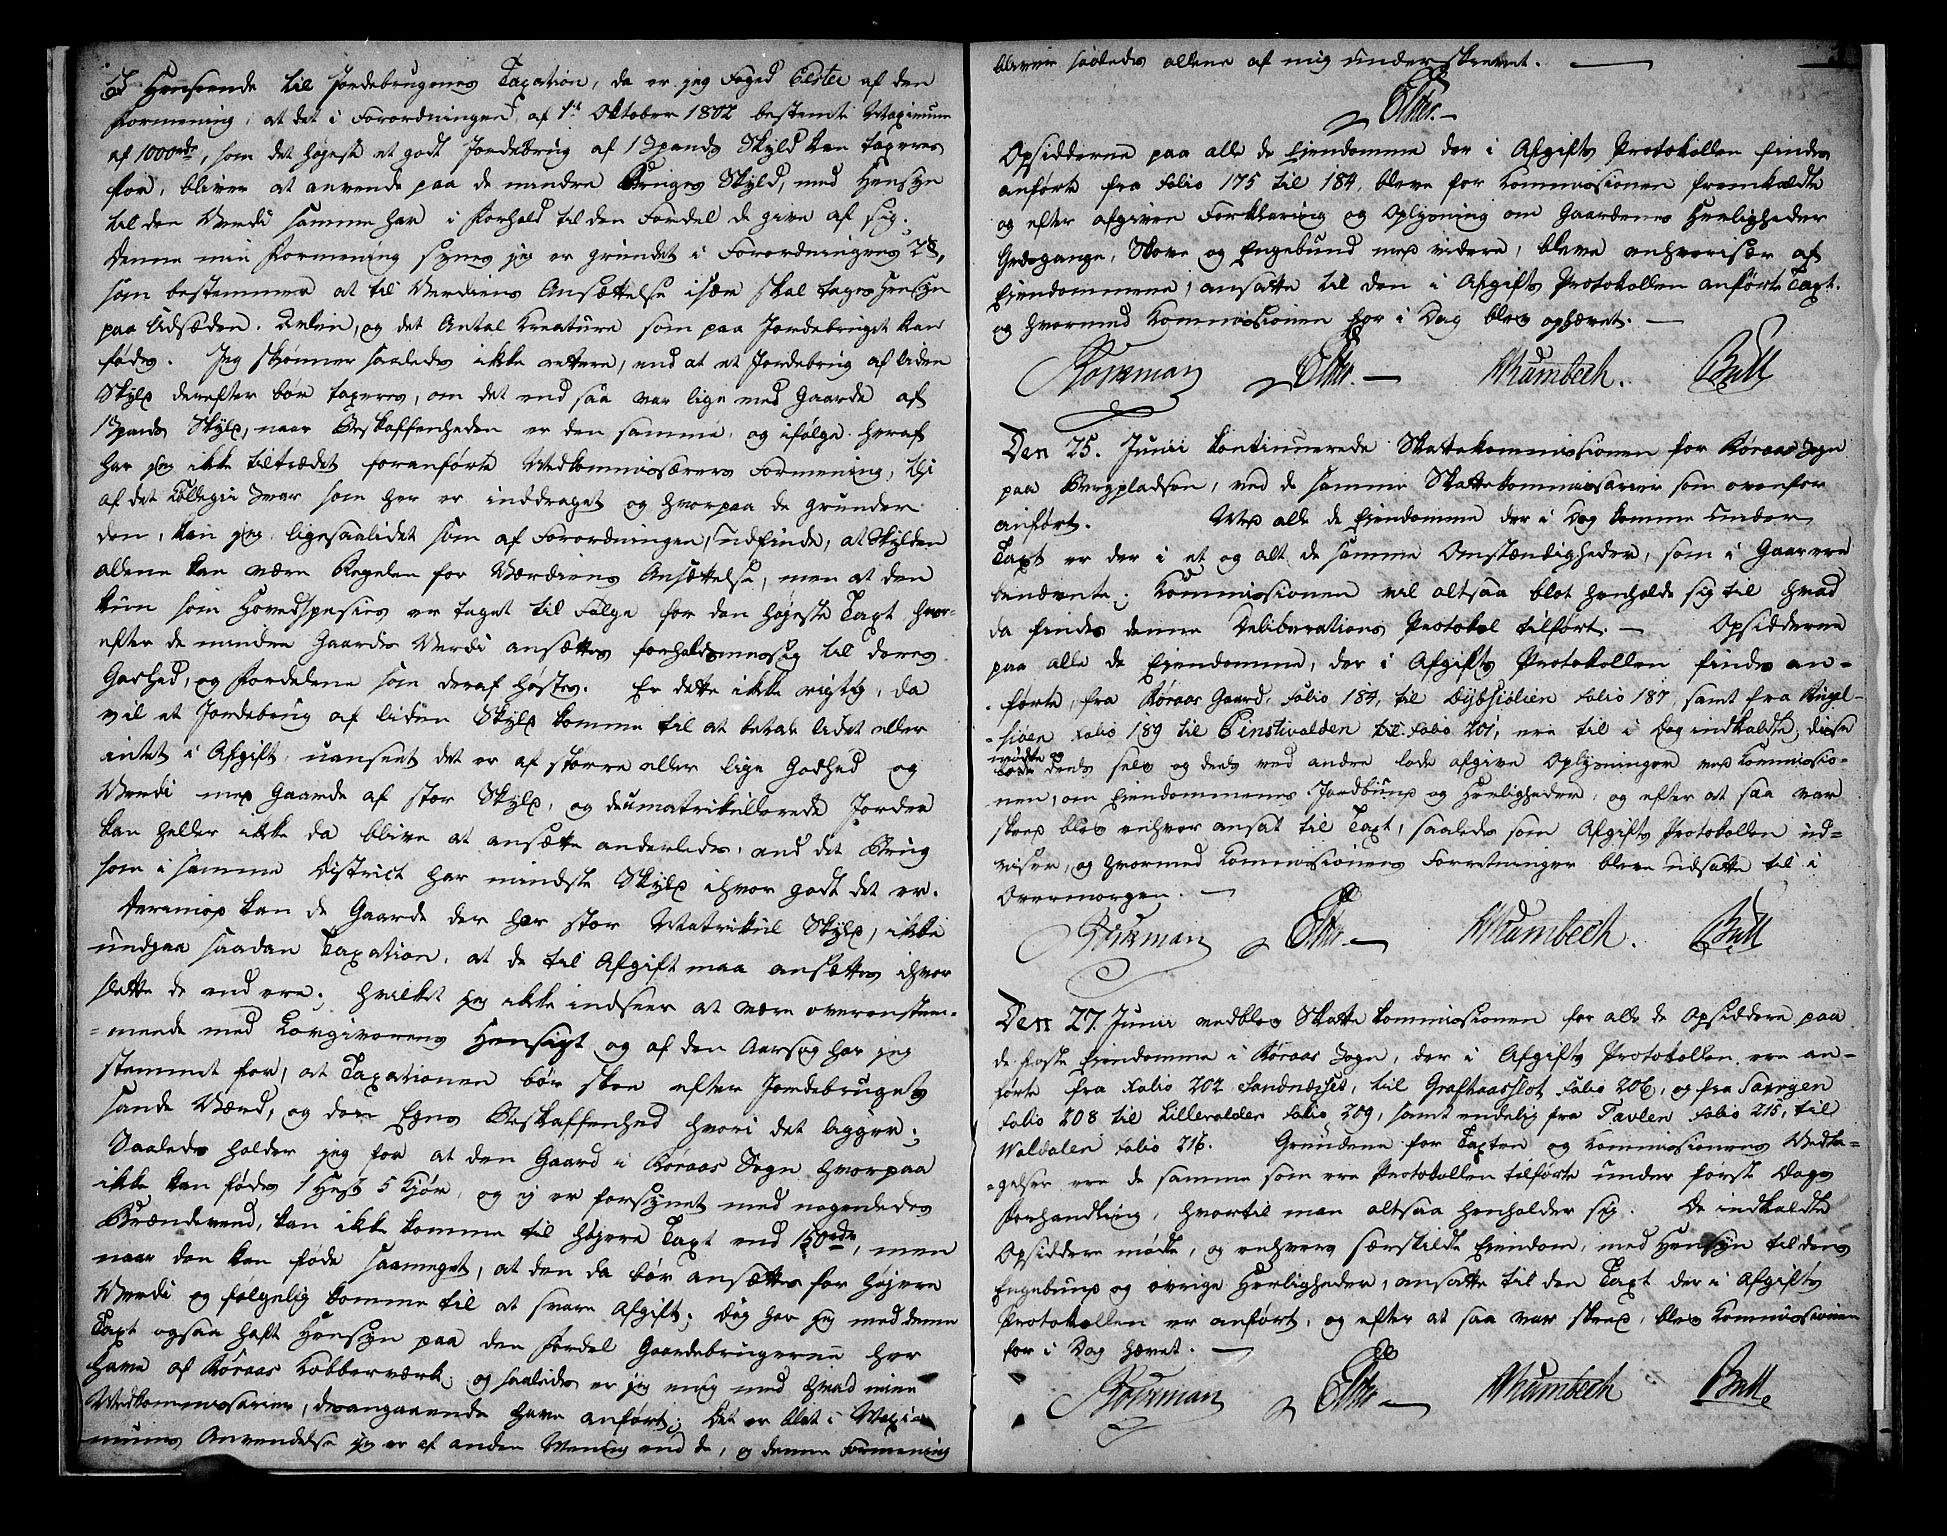 I Hensende til Jordebrugenes Taxation, da er jeg Foged Elster af den
Formening, at det i Forordningen af 1te Oktober 1802 bestemte Maximum
af 1000 rdr, som det højeste et godt Jordebrug af 1 Spands Skyld kan taxeres
for, bliver at anvende paa de mindre Bruges Skyld, med Hensyn
til den Verdi samme har i Forhold til den Fordel de give af sig.
Denne min Formening synes jeg er grundet i Forordningens 2 §,
som bestemmer at til Verdiens Ansættelse især skal tages Hensyn
paa Udsæden, Avlen, og det Antal Kreature som paa Jordebruget kan
fødes. Jeg skjønner saaledes ikke rettere, end at et Jordebrug af liden
Skyld derefter bør taxeres, om det end saa var lige med Gaarde af
1 Spands Skyld, naar Beskaffenheden er den samme, og ifølge heraf
har jeg ikke tiltrædet foranførte Medkommissærers Formening, thi
af det Collegii Svar som her er inddraget og hvorpaa de grunder
den, kan jeg ligesaalidet som af Forordningen, udfinde, at Skylden
allene kan være Regelen for Værdiens Ansættelse, men at den
kun som Hovedspesies er taget til Følge for den højeste Taxt hvor-
efter de mindre Gaardes Verdi ansættes forholdsmessig til deres
Godhed, og Fordelene som deraf høstes. Er dette ikke rigtig, da
vil et Jordebrug af liden Skyld komme til at betale lidet eller
intet i Afgift, uanseet det er af større eller lige Godhed og
Verdi med Gaarde af stor Skyld, og de umatrikulerede Jorder
kan heller ikke da blive at ansætte anderledes, end det Brug
som i samme District har mindste Skyld ihvor godt det er.
Derimod kan de Gaarde der har stor Matrikul Skyld, ikke
undgaa saadan Taxation, at de til Afgift maa ansættes ihvor
slette de end ere; hvilket jeg ikke indseer at være overensstem-
=mende med Lovgiverens Hensigt og af den Aarsag har jeg
stemmet for, at Taxationen bør skee efter Jordebrugets
sande Værd, og den Egns Beskaffenhed hvori det ligger;
Saaledes holder jeg for at den Gaard i Røraas Sogn hvorpaa
ikke kan fødes 1 Hest 5 Kjør, og ej er forsynet med nogenledes
Brændeved, kan ikke komme til højere Taxt end 150 rdr, men
naar den kan føde saameget, at den da bør ansættes for højere
Verdi og følgelig komme til at svare Afgift; Dog har jeg med denne
Taxt ogsaa haft Hensyn paa den Fordel Gaardebrugerne her
have af Røraas Kobberværk, og saaledes er jeg enig med hvad mine
Medkommissarier, desangaaende have anført; Det er blot i Maxi-
mums Anvendelse jeg er af anden Mening end de, og denne Formening
bliver saaledes allene af mig underskrevet.
Elster.
Opsidderne paa alle de Ejendomme der i Afgifts Protokollen findes
anførte fra Folio 175 til 184, bleve for Kommissionen fremkaldte
og efter afgiven Forklaring og Oplysning om Gaardenes Herligheder
Havegange, Skove og Engebund med videre, bleve enhver især af
Ejendommene, ansatte til den i Afgifts Protokollen anførte Taxt.
og hvormed Kommissionen for i Dag blev ophævet.
Borkman Elster. Krumbech. Bull
Den 25. Junii kontinuerede Skattekommissionen for Røraas Sogn
paa Bergpladsen, ved de samme Skattekommissarier som ovenfor
anført. Med alle de Ejendomme der i Dag komme under
Taxt er der i et og alt de samme Omstændigheder, som i Gaar ere
benævnte; Kommissionen vil altsaa blot henholde sig til hvad
da findes denne Deliberations Protokol tilført. Opsidderne
paa alle de Ejendomme, der i Afgifts Protokollen findes an-
førte, fra Røraas Gaard, Folio 184, til Dybsiølien Folio 187, samt fra Kugel-
=sioen Folio 189 til Einstivolden til Folio 201, ere til i Dag indkaldte; disse
mødte deels selv og deels ved andre lode afgive Oplysninger ved Kommissio-
nen, om Ejendommenes Jordbund og Herligheder, og efter at saa var
skeed blev enhver ansat til Taxt, saaledes som Afgifts Protokollen ud-
viser, og hvormed Kommissionens Forretninger bleve udsatte til i
Overmorgen.
Borkman Elster Krumbech. Bull
Den 27. Junii vedblev Skatte kommissionen for alle de Opsiddere paa
de fleste Ejendomme i Røraas Sogn, der i Afgifts Protokollen ere an-
førte fra Folio 202 Sandnæsset, til Grafhaasslot Folio 206, og fra Saxrgen
Folio 208 til Lillevolden Folio 209, samt endelig fra Tavlen Folio 215, til
Waldalen Folio 216. Grundene for Taxten og Kommissionens Vedta-
=gelser ere de samme som ere Protokollen tilførte under første Dags
Forhandling, hvortil man altsaa henholder sig. De indkaldte
Opsiddere mødte, og enhvers særskilte Ejendom, med Hensyn til dens
Engebund og øvrige Herligheder, ansatte til den Taxt der i Afgifts
Protokollen er anført, og efter at saa var skeed, blev Kommissionen
for i Dag hævet.
Borkman Elster Krumbech Bull